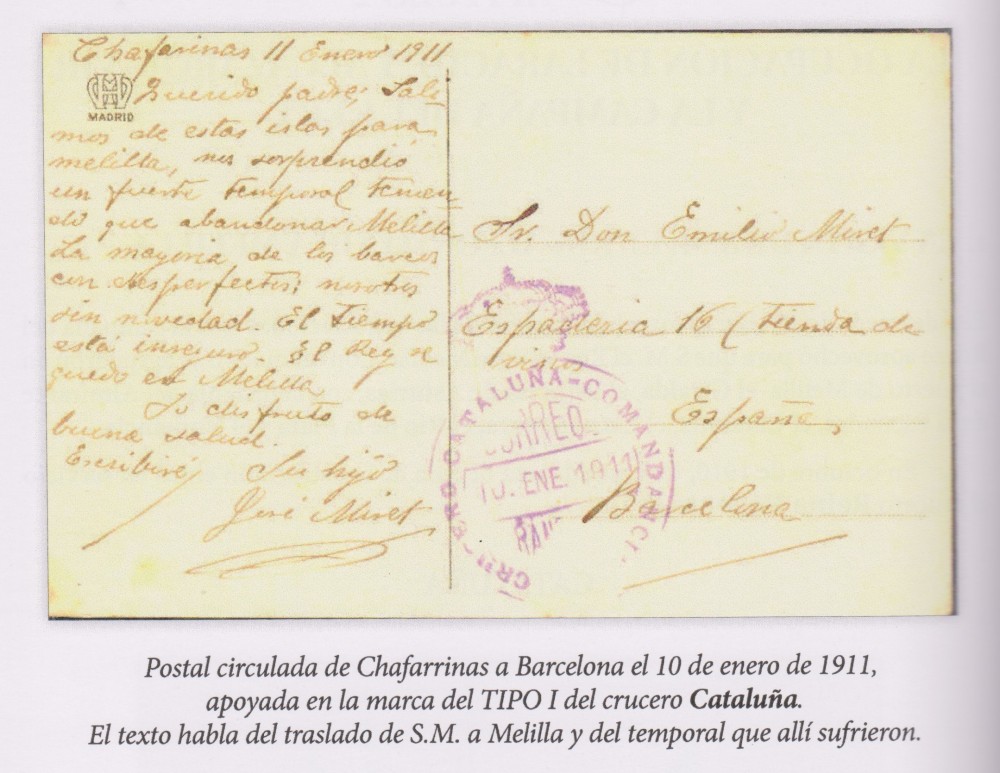 Chafarinas 11 Enero 1911
MADRID
Querido padre; Sali-
mos de estas islas para
melilla, nos sorprendió
un fuerte temporal tenien
do que abandonar Melilla
La mayoria de los barcos
con desperfectos; nosotros
sin novedad. El tiempo
está inseguro. El Rey se
quedó en Melilla
Yo disfruto de
buena salud.
Escribiré Su hijo
José Miret
Sr. Don Emilio Miret
Espaderia 16 (tienda de
vinos
España,
Barcelona
CRU ERO CATALUÑA-COMANDANCI
CORREO
10. ENE. 1911
Postal circulada de Chafarrinas a Barcelona el 10 de enero de 1911,
apoyada en la marca del TIPO I del crucero Cataluña.
El texto habla del traslado de S.M. a Melilla y del temporal que allí sufrieron.